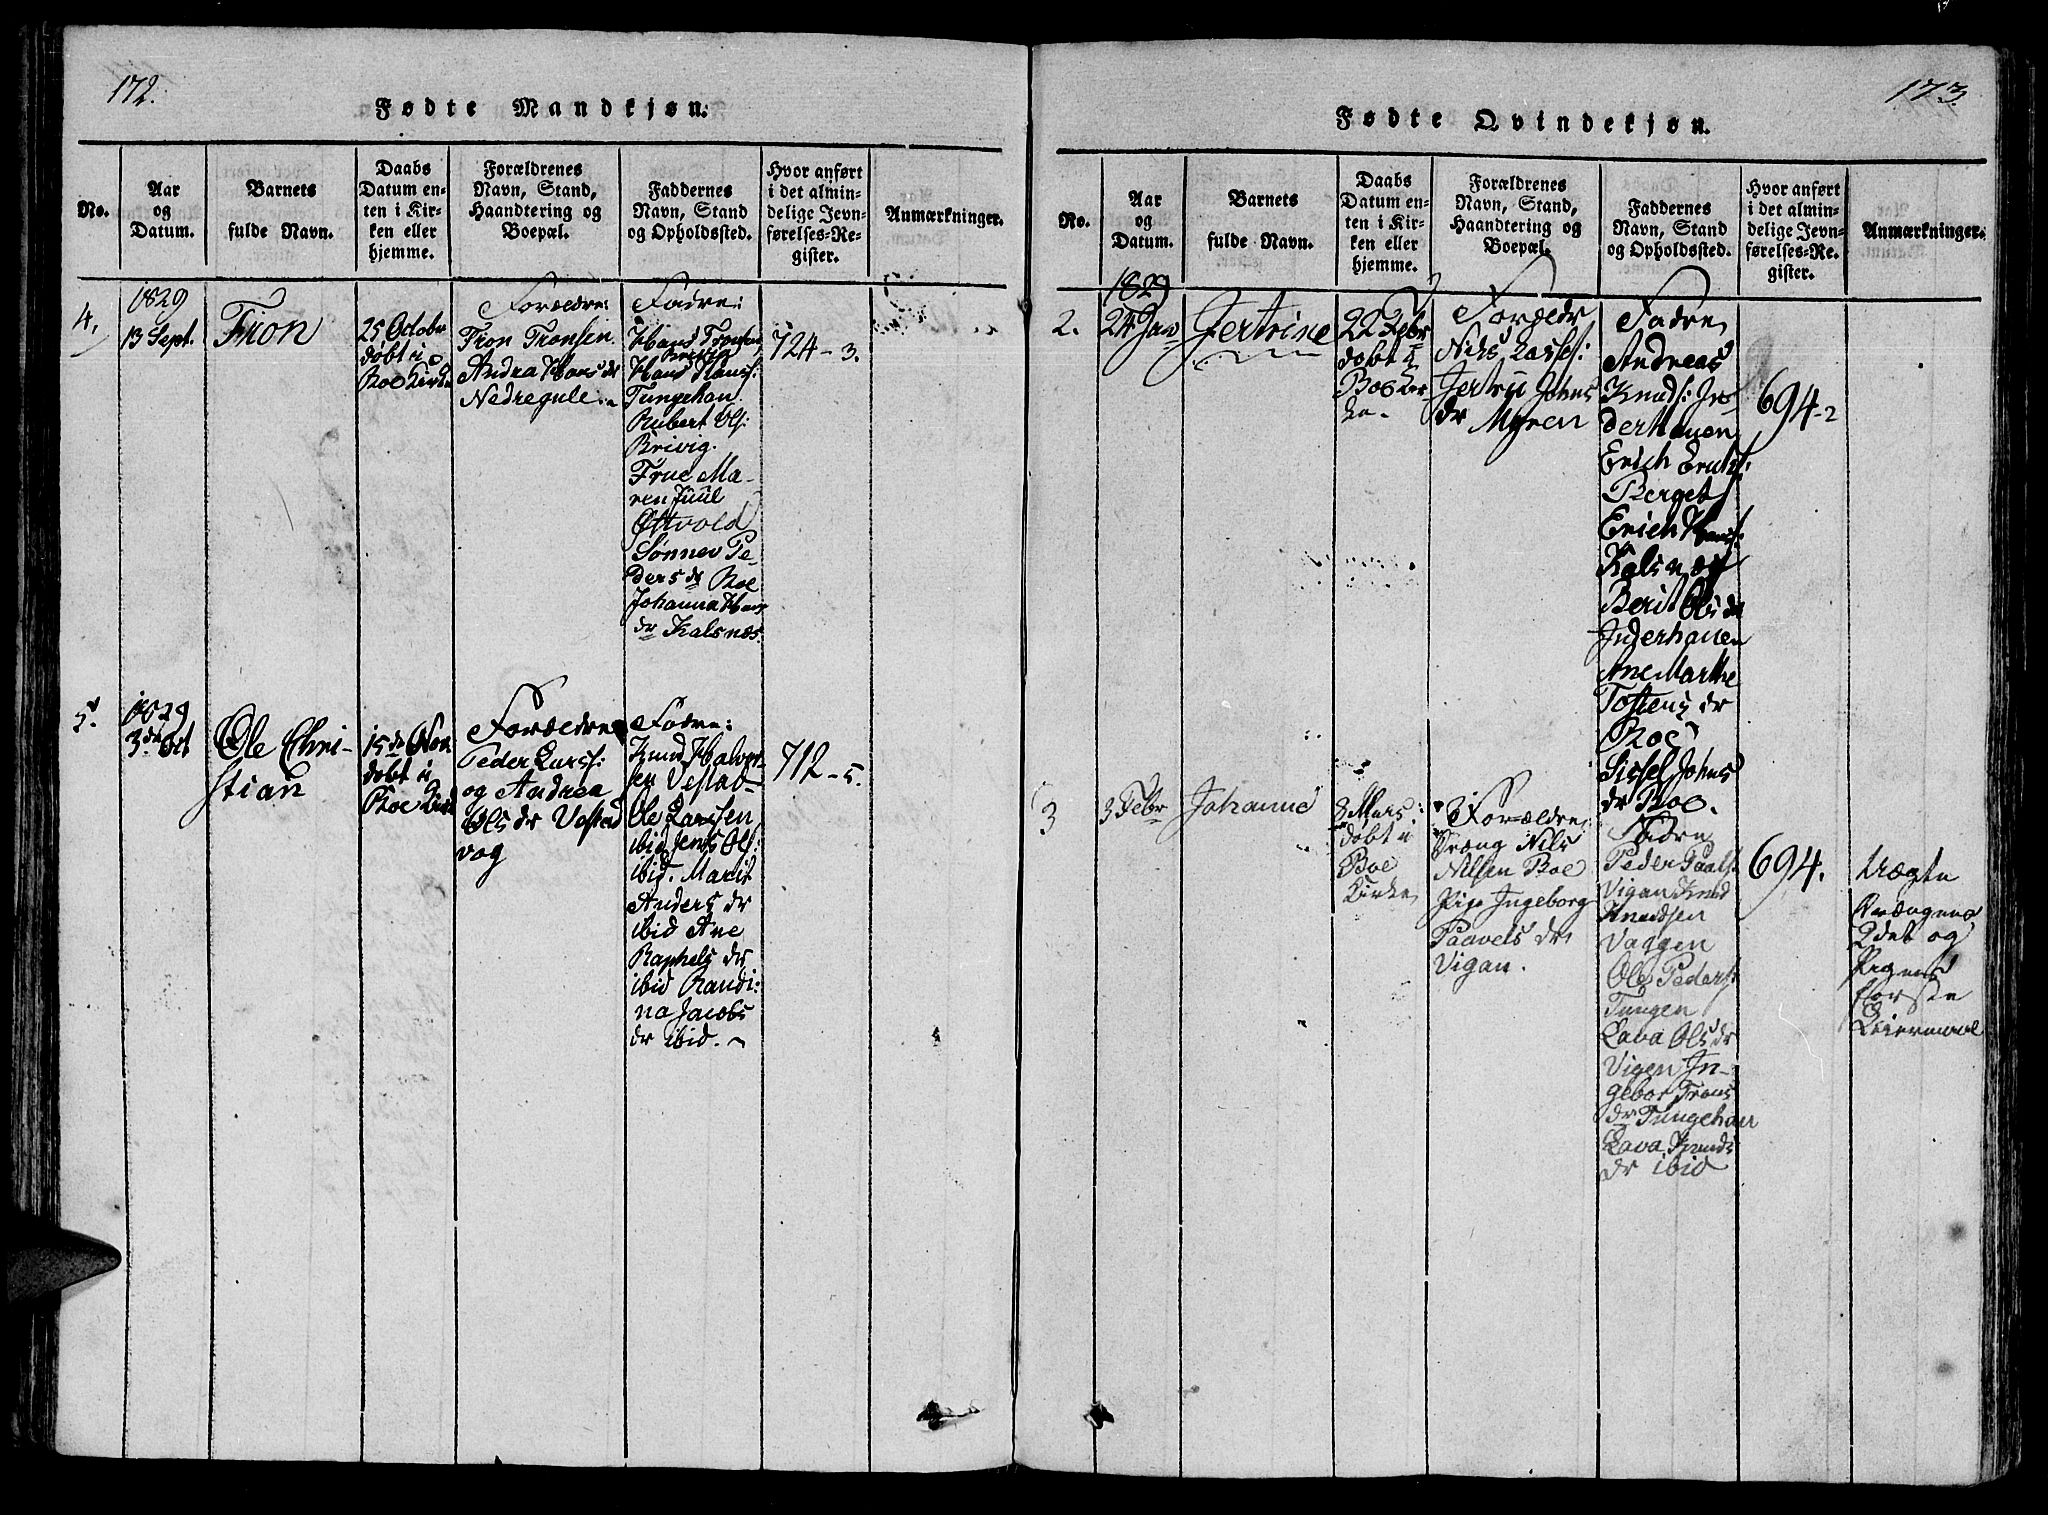 172.
Fødte Mandkjøn.
No.
Aar
og
Datum.
Barnets
fulde Navn.
Daabs
Datum en-
ten i Kir-
ken eller
hjemme.
Forældrenes
Navn, Stand,
Haandtering og
Boepæl.
Faddernes
Navn, Stand
og Opholdssted.
Hvor anført
i det almin-
delige Jevn-
førelses-Re-
gister.
Anmærkninger.
4.
1829
13 Sept.
Tron
25 Octobr
dobt i
Boe Kirke
Forældre:
Tron Tronsen
Andra Hans dr
Nedregule.
Fadre:
Hans Tronsen
Brivig
Hans Hans:
Tungehan
Rubert Ols:
Brivig.
Frue Ma-
ren Juul
Ottvold
Sønnev Pe-
ders dr Boe
Johanna Hans
dr Kalsnæs.
724-3.
5.
1829
3de Oct
Ole Chri-
stian
15de Nov
dobt i
Boe Kirke
Forældre
Peder Larss:
og Andrea
Ols dr Vestad
vog
Fadre:
Knud Halvor-
sen Vestad-
Ole Larssen
ibid Jens Ols:
ibid. Marit
Anders dr
ibid Ane
Raphels dr
ibid Randi:
na Jacobs
dr ibid.
712-5.
173.
Fødte Qvindekjøn.
No.
Aar
og
Datum.
Barnets
fulde Navn.
Daabs
Datum en-
ten i Kir-
ken eller
hjemme.
Forældrenes
Navn, Stand,
Haandtering og
Boepæl.
Faddernes
Navn, Stand
og Opholdssted.
Hvor anført
i det almin-
delige Jevn-
førelses-Re-
gister.
Anmærkninger.
2.
1829
24 Jan
Jertrine
22 Febr
dobt i
Boe Kir
ke.
Foreldr
Nils Lasses:
Jertru Johns
dr Myren
Fadre
Andreas
Knuds: In-
derhauen
Erich
Berget
Erich Hans:
Kalsnæs
Berit Ols dr
Inderhauen
Ane Marthe
Tostens dr
Boe
Sissel Johns
dr Boe.
694-2
3
3 Febr
Johanne
8 Mars:
dobt i
Boe
Kirke
Forældre:
Dræng Nils
Nilsen Boe
Pige Ingeborg
Paavels dr
Vigan.
Fadre
Peder Paals:
Vigan Knud
Knudsen
Vaggen
Ole Peders:
Tungen
Lava Ols dr
Vigen In-
gebor Trons
dr Tungehan
Lava Knuds
dr ibid
694.
Uægte
Drængens
2det og
Pigens
første
Leiermaal